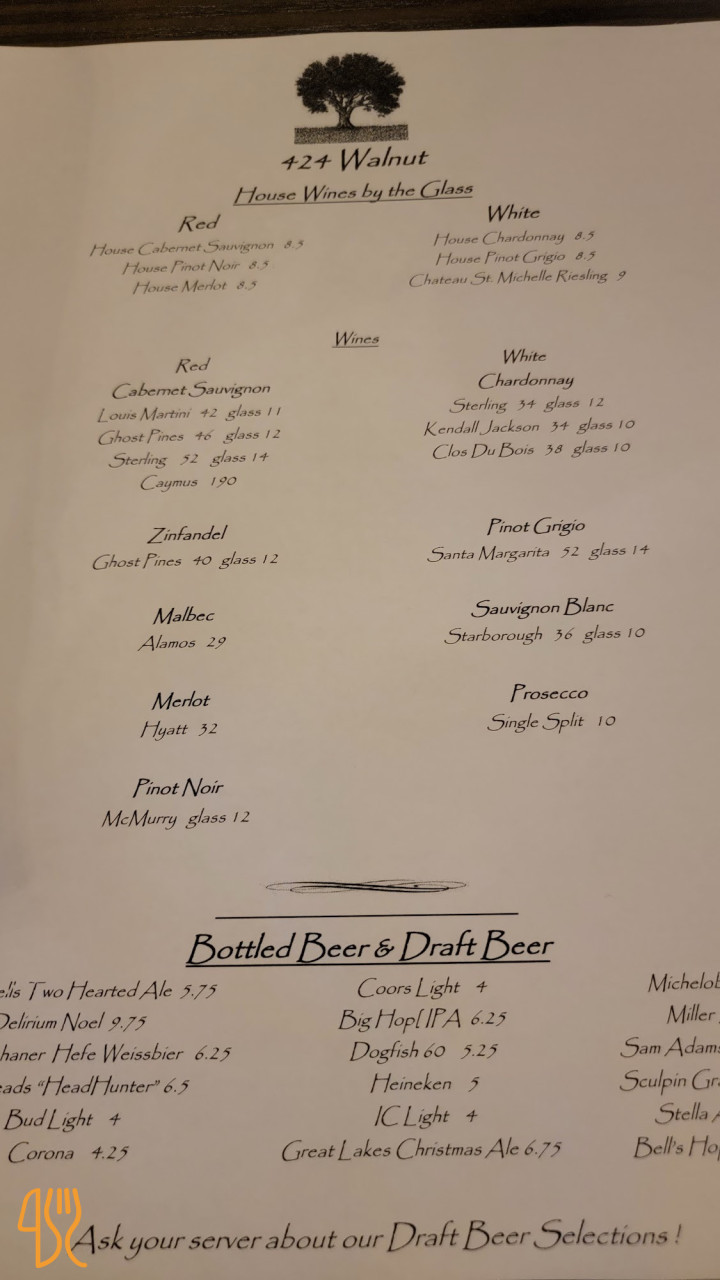 424 Walnut
House Wines by the Glass
Red
House Cabernet Sauvignon 8.5
House Pinot Noir 8.5
House Merlot 8.5
White
House Chardonnay 8.5
House Pinot Grigio 8.5
Chateau St. Michelle Riesling 9
Wines
Red
Cabernet Sauvignon
Louis Martini 42 glass 11
Ghost Pines 46 glass 12
Sterling 52 glass 14
Caymus 190
Zinfandel
Ghost Pines 40 glass 12
Malbec
Alamos 29
Merlot
Hyatt 32
Pinot Noir
McMurry glass 12
White
Chardonnay
Sterling 34 glass 12
Kendall Jackson 34 glass 10
Clos Du Bois 38 glass 10
Pinot Grigio
Santa Margarita 52 glass 14
Sauvignon Blanc
Starborough 36 glass 10
Prosecco
Single Split 10
Bottled Beer & Draft Beer
ell's Two Hearted Ale 5.75
Delirium Noel 9.75
haner Hefe Weissbier 6.25
eads "HeadHunter" 6.5
Bud Light 4
Corona 4.25
Coors Light 4
Big Hop[ IPA 6.25
Dogfish 60 5.25
Heineken 5
IC Light 4
Great Lakes Christmas Ale 6.75
Michelob
Miller
Sam Adams
Sculpin Gr
Stella
Bell's Ho
Ask your server about our Draft Beer Selections !